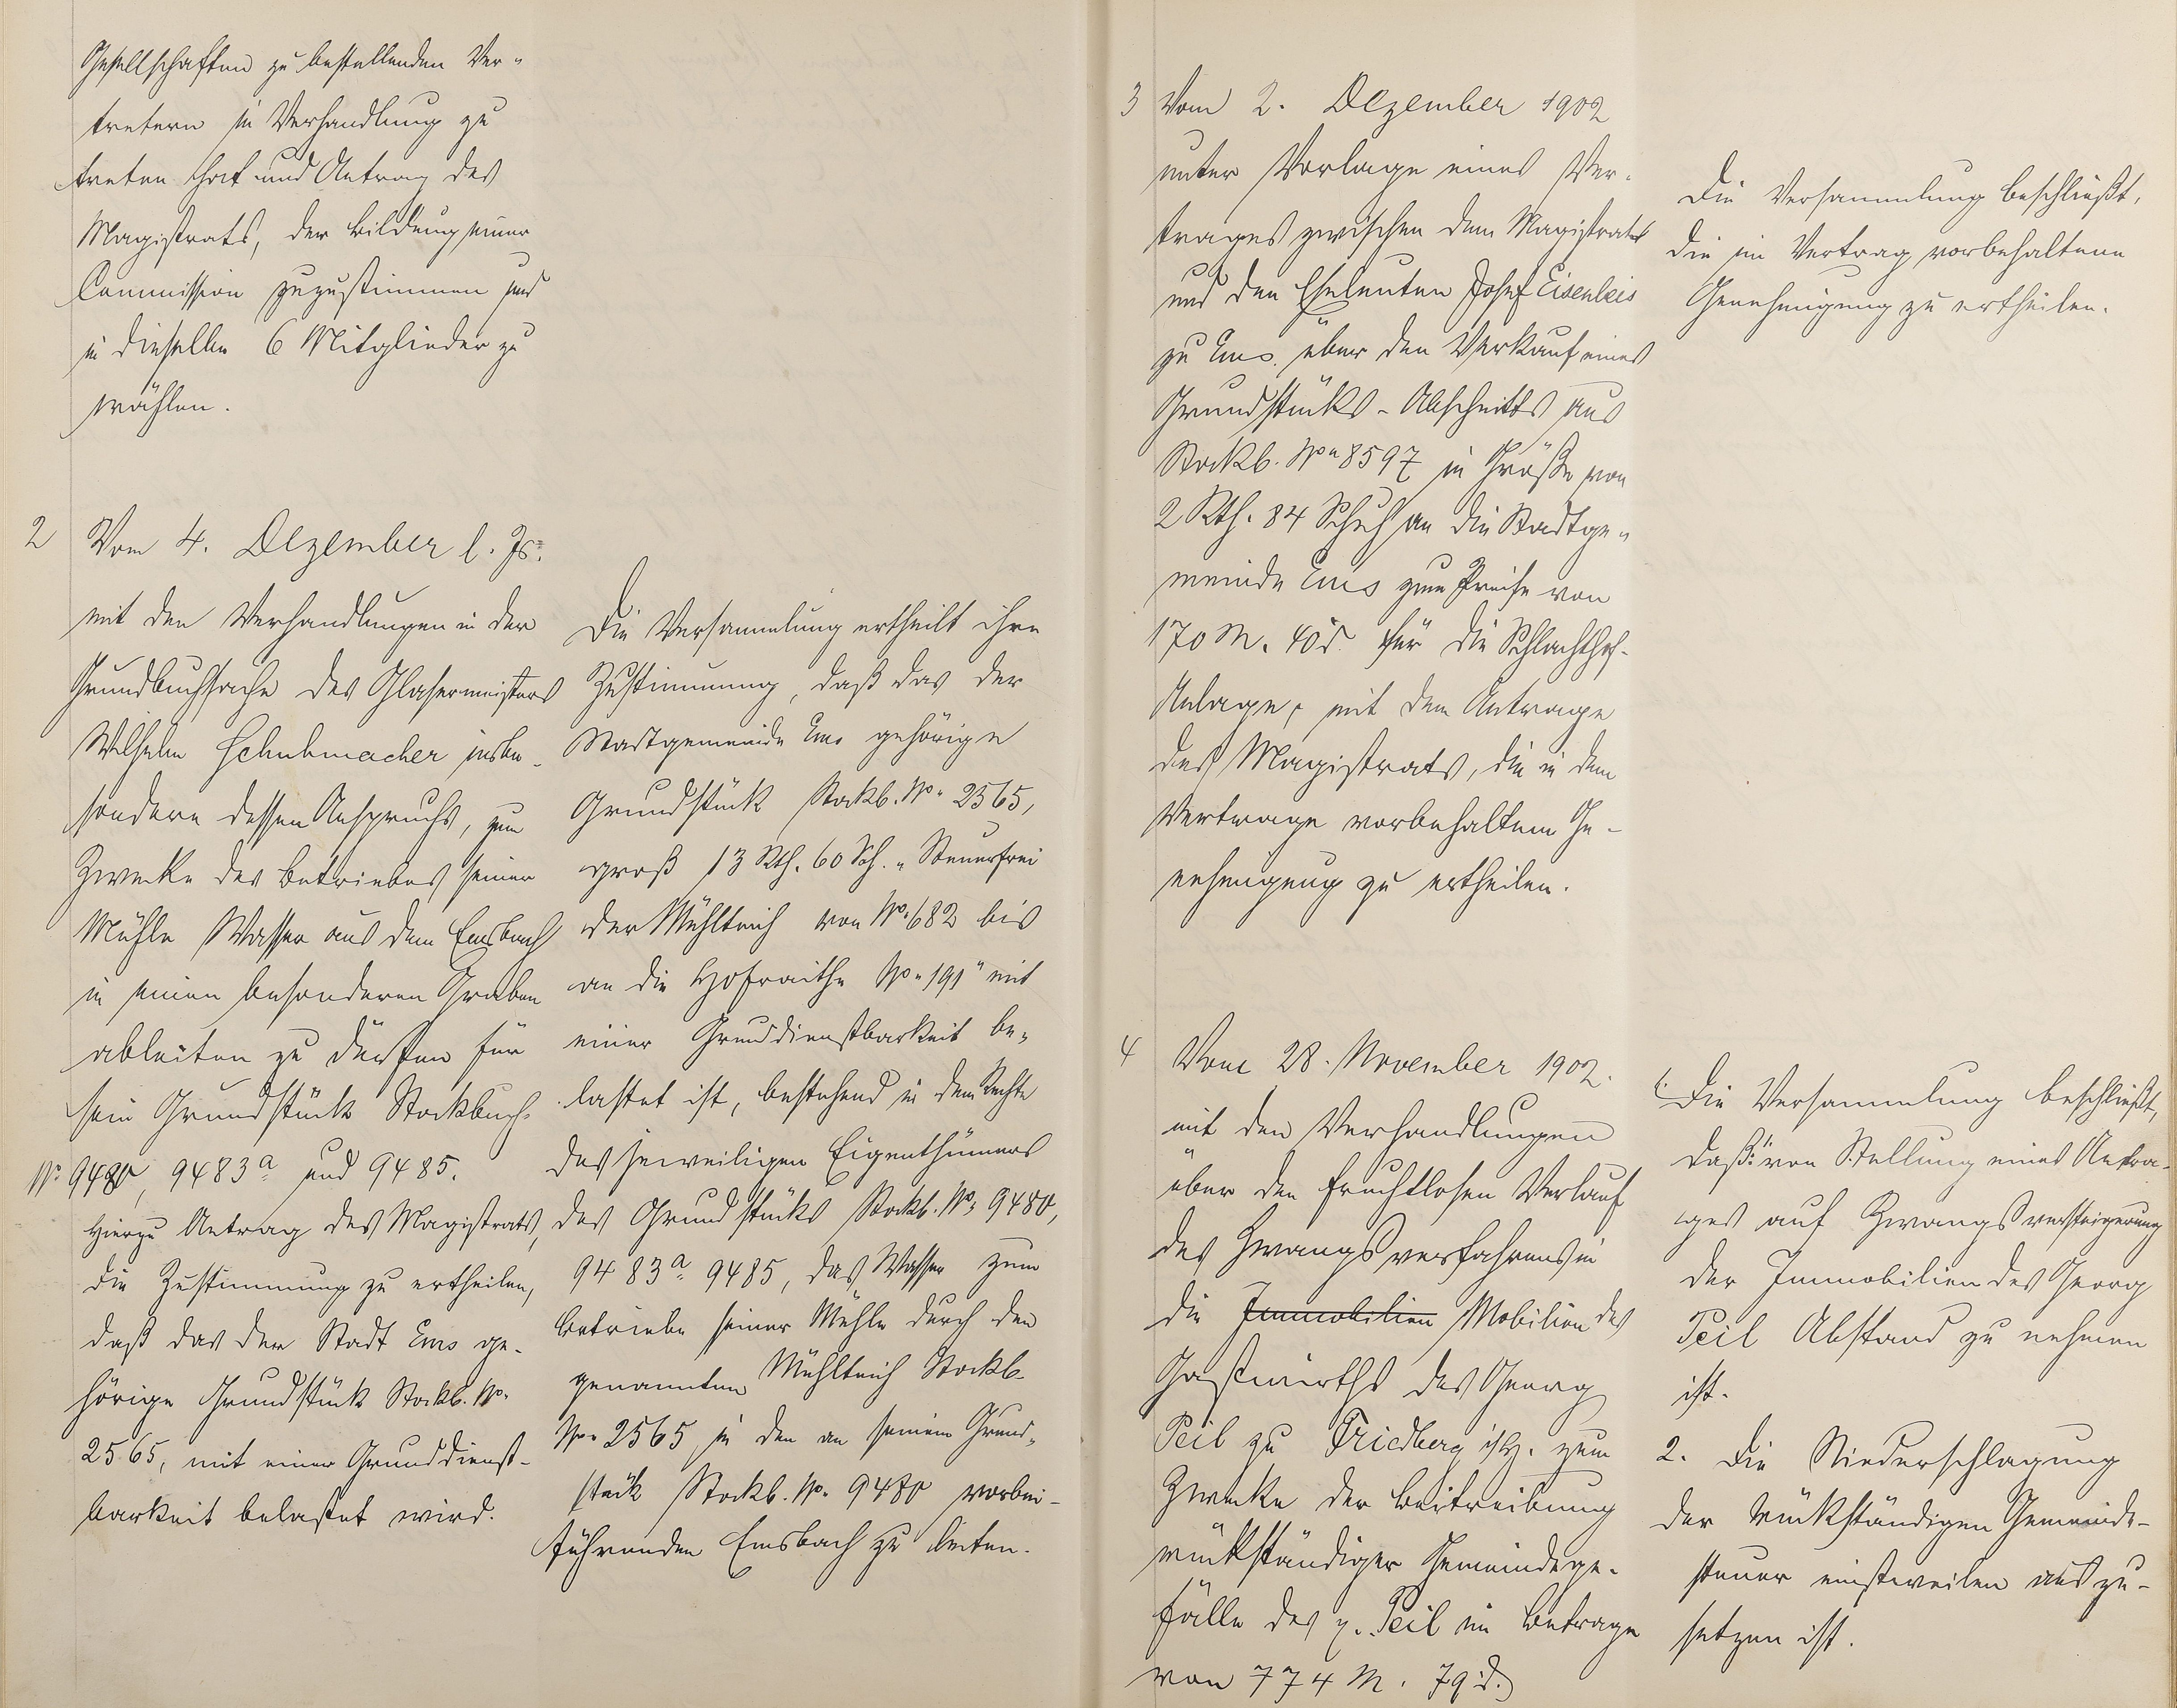 Gesellschaften zu bestellenden Ver-
tretern in Verhandlung zu
treten hat und Antrag des
Magistrats, der Bildung einer
Commission zuzustimmen und
in dieselbe 6 Mitglieder zu
wählen.
2 Vom 4. Dezember l. Js.
mit den Verhandlungen in der
Grundbuchsache des Glasermeisters
Wilhelm Schuhmacher insbe-
sondere dessen Anspruchs, zum
Zwecke des Betriebes seiner
Mühle Wasser aus dem Emsbach
in einen besonderen Graben
ableiten zu dürfen für
sein Grundstück Stockbuch-
No 9480, 9483a und 9485.
Hierzu Antrag des Magistrats,
die Zustimmung zu ertheilen,
daß das der Stadt Ems ge-
hörige Grundstück Stockb. No.
2565, mit einer Grunddienst-
barkeit belastet wird.
Die Versammlung ertheilt ihre
Zustimmung, daß das der
Stadtgemeinde Ems gehörige
Grundstück Stockb. No. 2565,
groß 13 Rth. 60 Sch. „Steuerfrei
der Mühlteich von No. 682 bis
an die Hofraithe No. 191" mit
einer Grunddienstbarkeit be-
lastet ist, bestehend in dem Rechte
des jeweiligen Eigenthümers
des Grundstücks Stockb. No. 9480,
9483a 9485, das Wasser zum
Betriebe seiner Mühle durch den
genannten Mühlteich Stockb.
No. 2565 in den an seinem Grund-
stück Stockb. No. 9480 vorbei-
führenden Emsbach zu leiten.
3 Vom 2. Dezember 1902
unter Vorlage eines Ver-
trages zwischen dem Magistrat
und den Eheleuten Josef Eisenbeis
zu Ems über den Verkauf eines
Grundstücks-Abschnitts aus
Stockb. No. 8597 in Größe von
2 Rth. 84 Schuh an die Stadtge-
meinde Ems zum Preise von
170 M. 40 d. für die Schlachthof-
Anlage, mit dem Antrage
des Magistrats, die in dem
Vertrage vorbehaltene Ge-
nehmigung zu ertheilen.
Die Versammlung beschließt,
die im Vertrag vorbehaltene
Genehmigung zu ertheilen.
4 Vom 28. November 1902.
mit den Verhandlungen
über den fruchtlosen Verlauf
des Zwangsverfahrens in
die Immobilien Mobilien des
Gastwirths des Georg
Peil zu Friedberg i/H. zum
Zwecke der Beitreibung
rückständiger Gemeindege-
fälle des p. Peil im Betrage
von 774 M. 79 d.
1. Die Versammlung beschließt,
daß: von Stellung eines Antra-
ges auf Zwangsversteigerung
der Immobilien des Georg
Peil Abstand zu nehmen
ist.
2. Die Niederschlagung
der rückständigen Gemeinde-
steuer einstweilen auszu-
setzen ist.